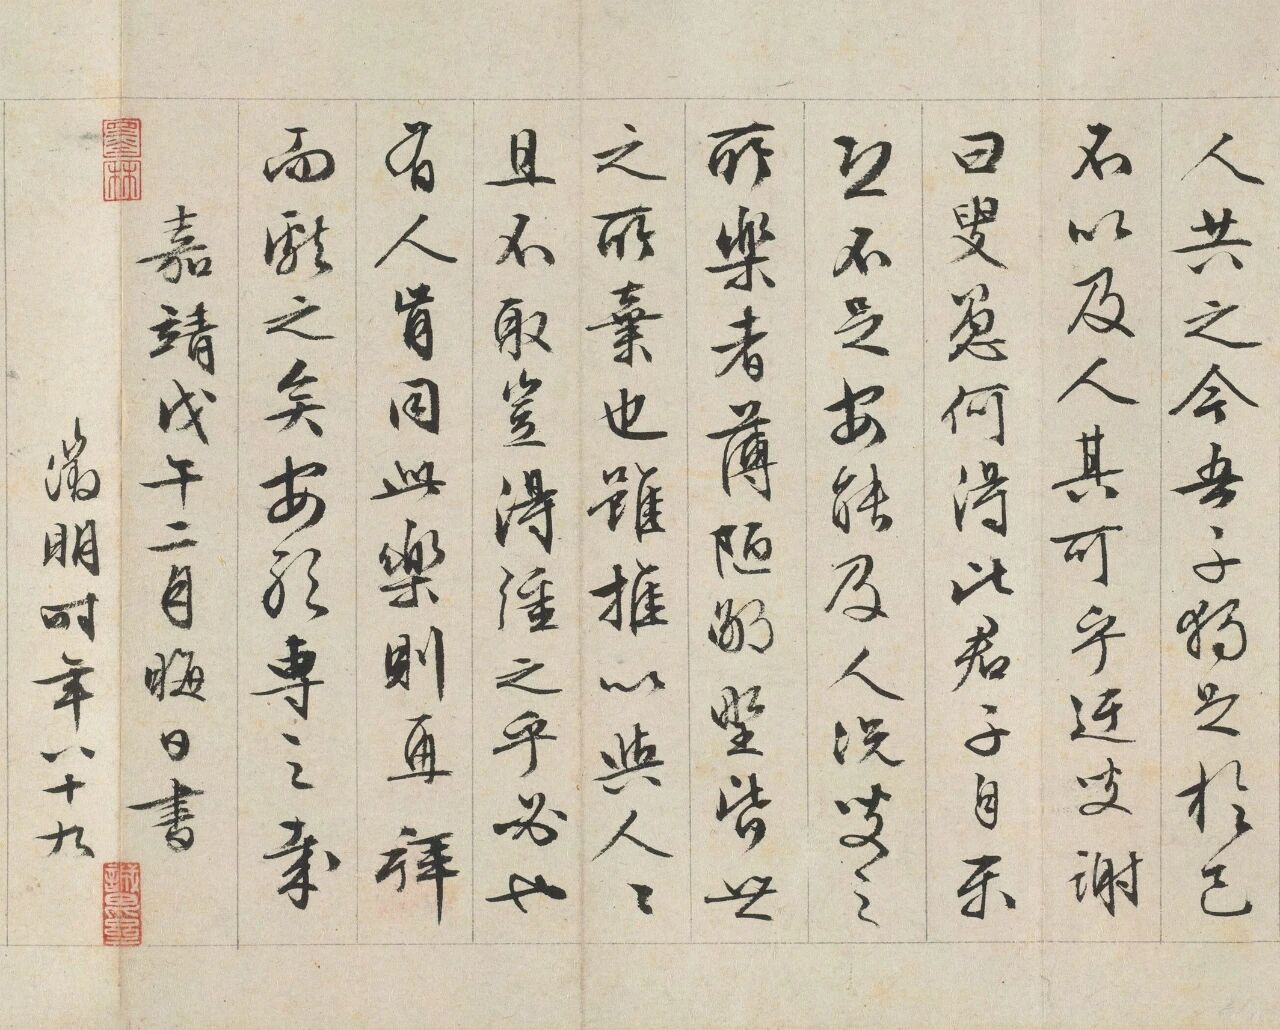 人共之今吾子獨足於己
不以及人其可乎迂叟謝
曰叟愚何得比君子自樂
恐不足安能及人況叟之
所樂者薄陋鄙野皆世
之所棄也雖推以與人〻
且不取豈得強之乎必也
有人肯同此樂則再拜
而獻之矣安敢專之哉
嘉靖戊午二月晦日書
徵明時年八十九
墨林